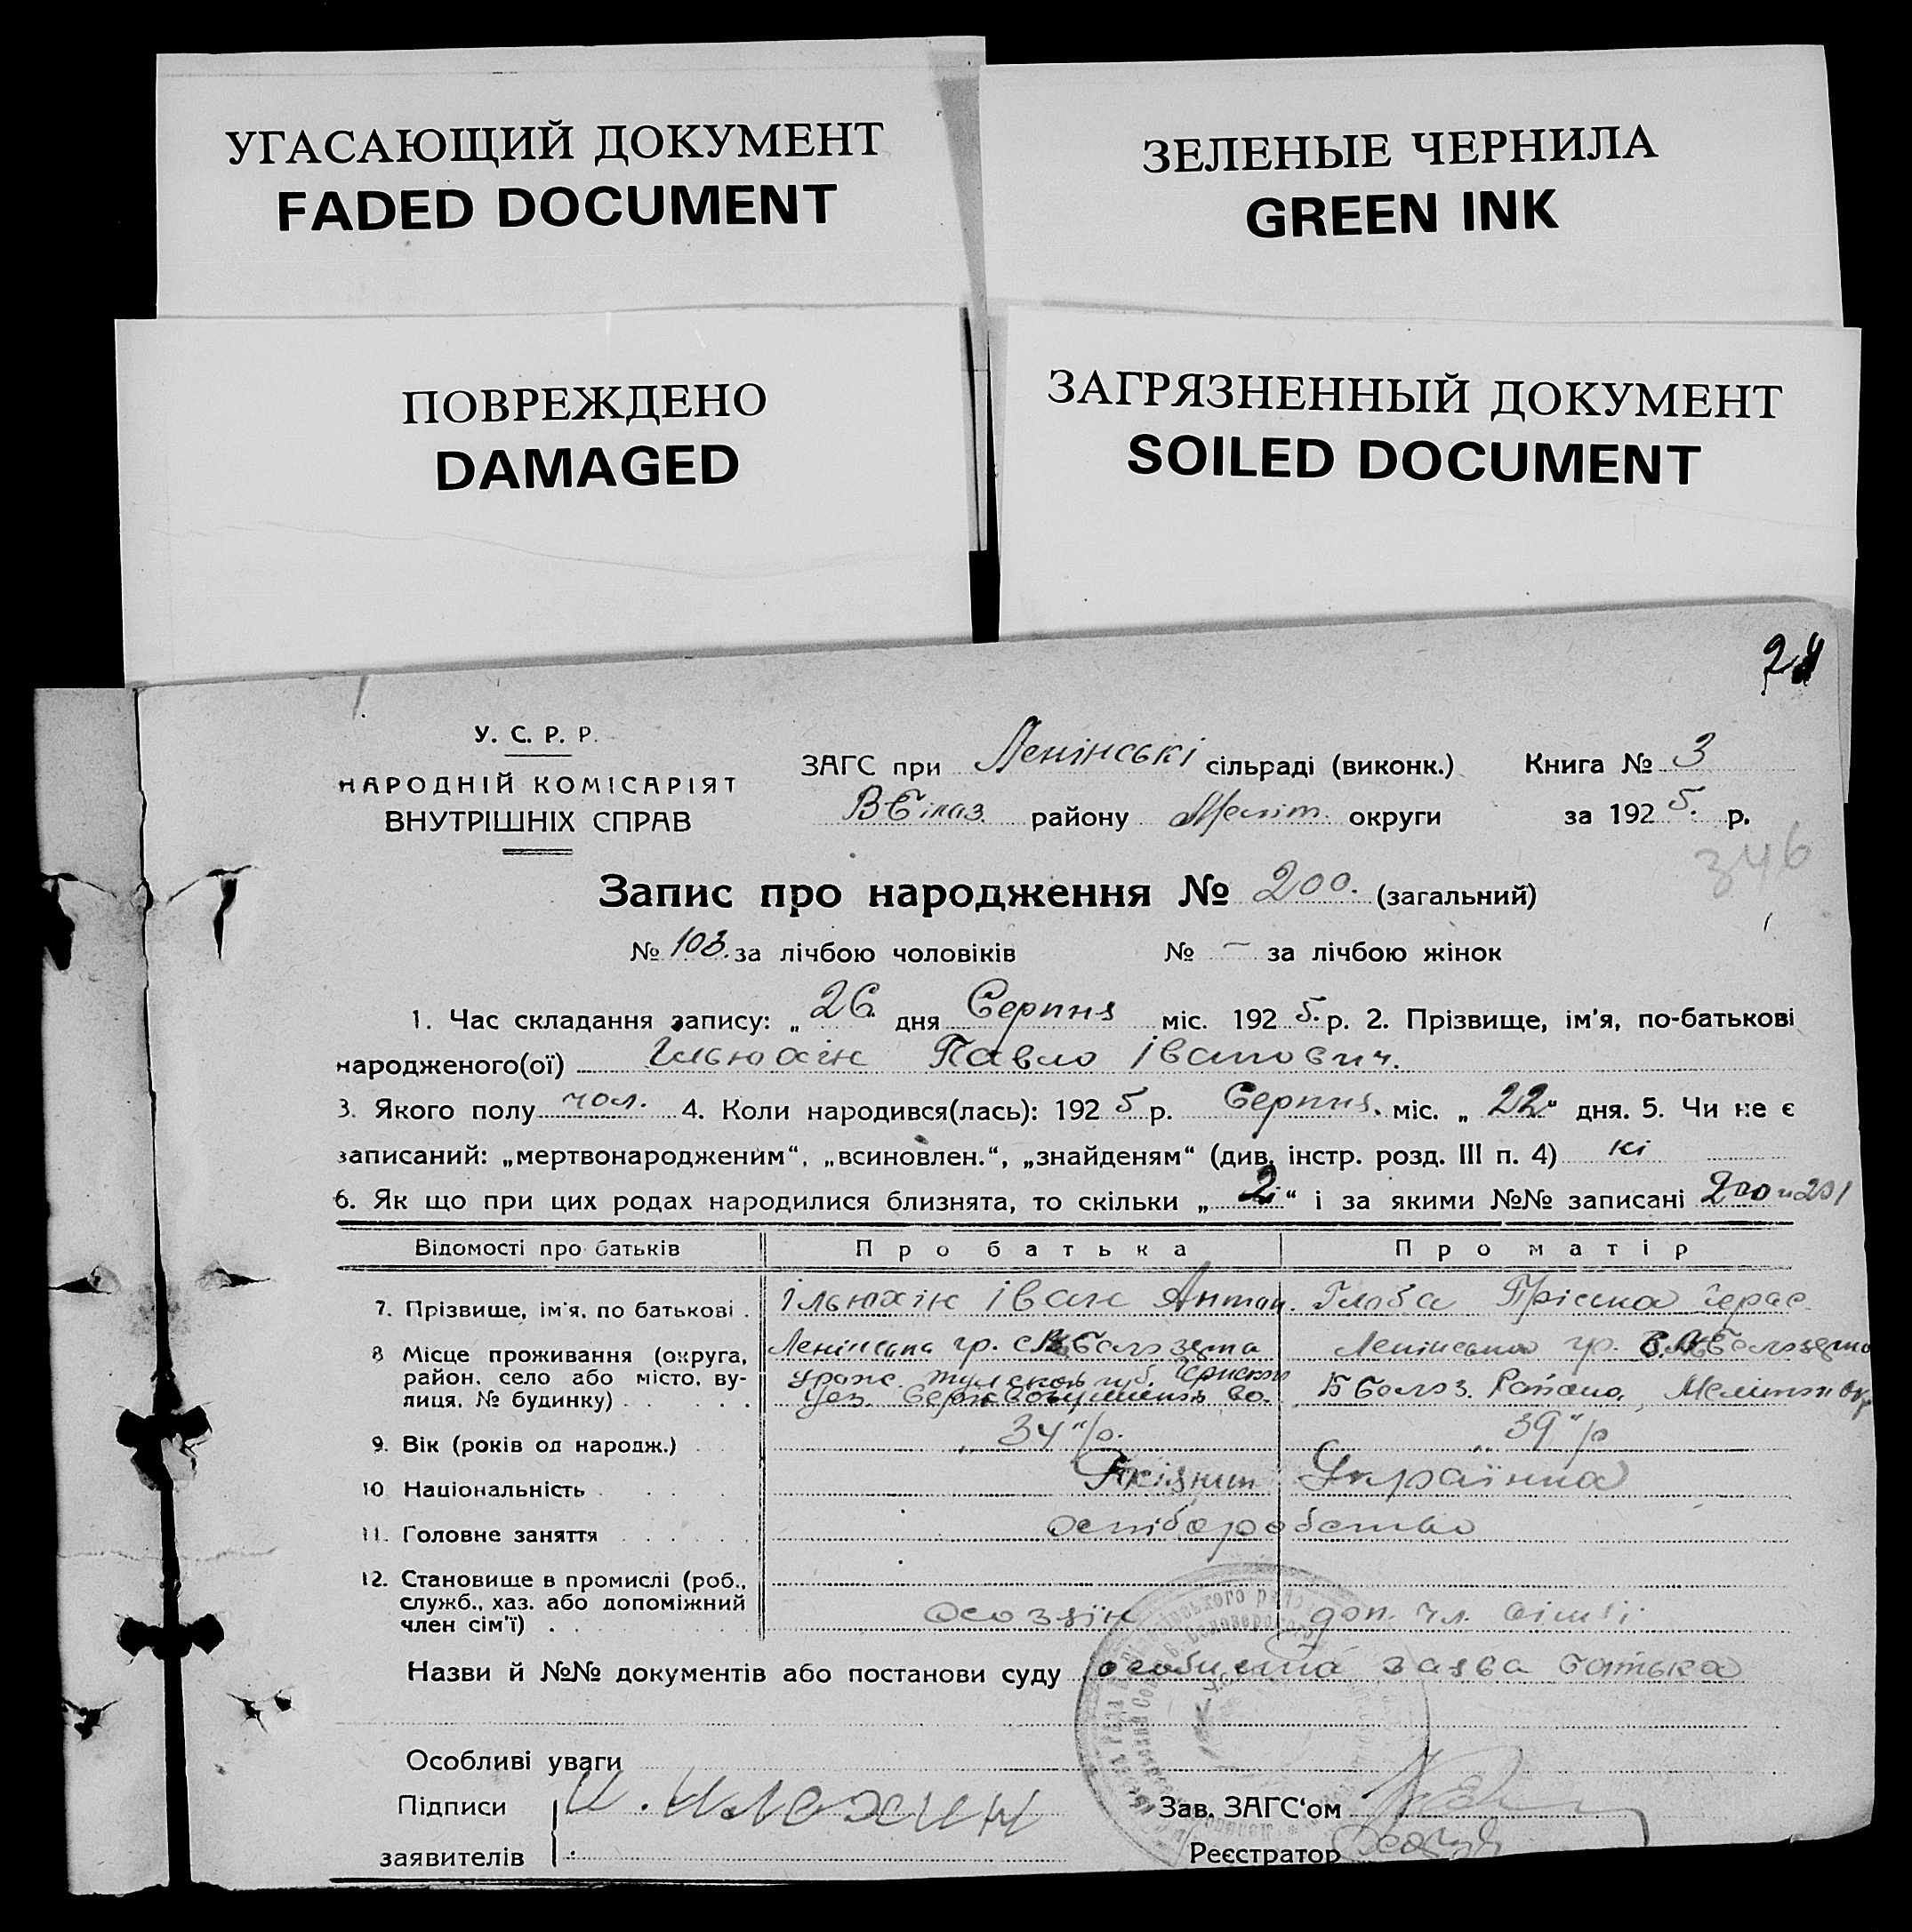 УГАСАЮЩИЙ ДОКУМЕНТ
FADED DOCUMENT
ЗЕЛЕНЫЕ ЧЕРНИЛА
GREEN INK
ПОВРЕЖДЕНО
DAMAGED
ЗАГРЯЗНЕННЫЙ ДОКУМЕНТ
SOILED DOCUMENT
У. С. Р. Р.
НАРОДНІЙ КОМІСАРІЯТ
ВНУТРІШНІХ СПРАВ
ЗАГС при Ленінські сільраді (виконк.) Книга № 3
В-Білоз. району Меліт. округи за 1925. р.
346
Запис про народження № 200. (загальний)
№ 103. за лічбою чоловіків № — за лічбою жінок
1. Час складання запису: „26 дня Серпня міс. 1925. р. 2. Прізвище, ім'я, по-батькові
народженого(ої) Ільюхін Павло Іванович.
3. Якого полу чол. 4. Коли народився(лась): 1925 р. Серпня. міс. „22“ дня. 5. Чи не є
записаний: „мертвонародженим“, „всиновлен.“, „знайденям“ (див. інстр. розд. III п. 4) ні
6. Як що при цих родах народилися близнята, то скільки „2“ і за якими №№ записані 200 и 201
Відомості про батьків Про батька Про матір
7. Прізвище, ім'я, по батькові . Ільюхін Іван Антон. Глоба Прісика Герас.
8 Місце проживання (округа, район, село або місто, вулиця, № будинку) . . . Ленінська гр. с. В Белозерка
Ленінська гр. В Белозерка
урож. Тульской губ.
уез.
Б Белоз. Району, Меліт. Окр
9. Вік (років од народж.) „34“ р. „39“ р
10 Національність . . . Росіянин Українка
11. Головне заняття . . . . хліборобство
12. Становище в промислі (роб., служб., хаз. або допоміжний член сім'ї) . . хозяїн доп. чл. сім'ї
Назви й №№ документів або постанови суду особиста заява батька
Особливі уваги
Підписи И. Илюхин Зав. ЗАГС'ом
заявителів Реєстратор